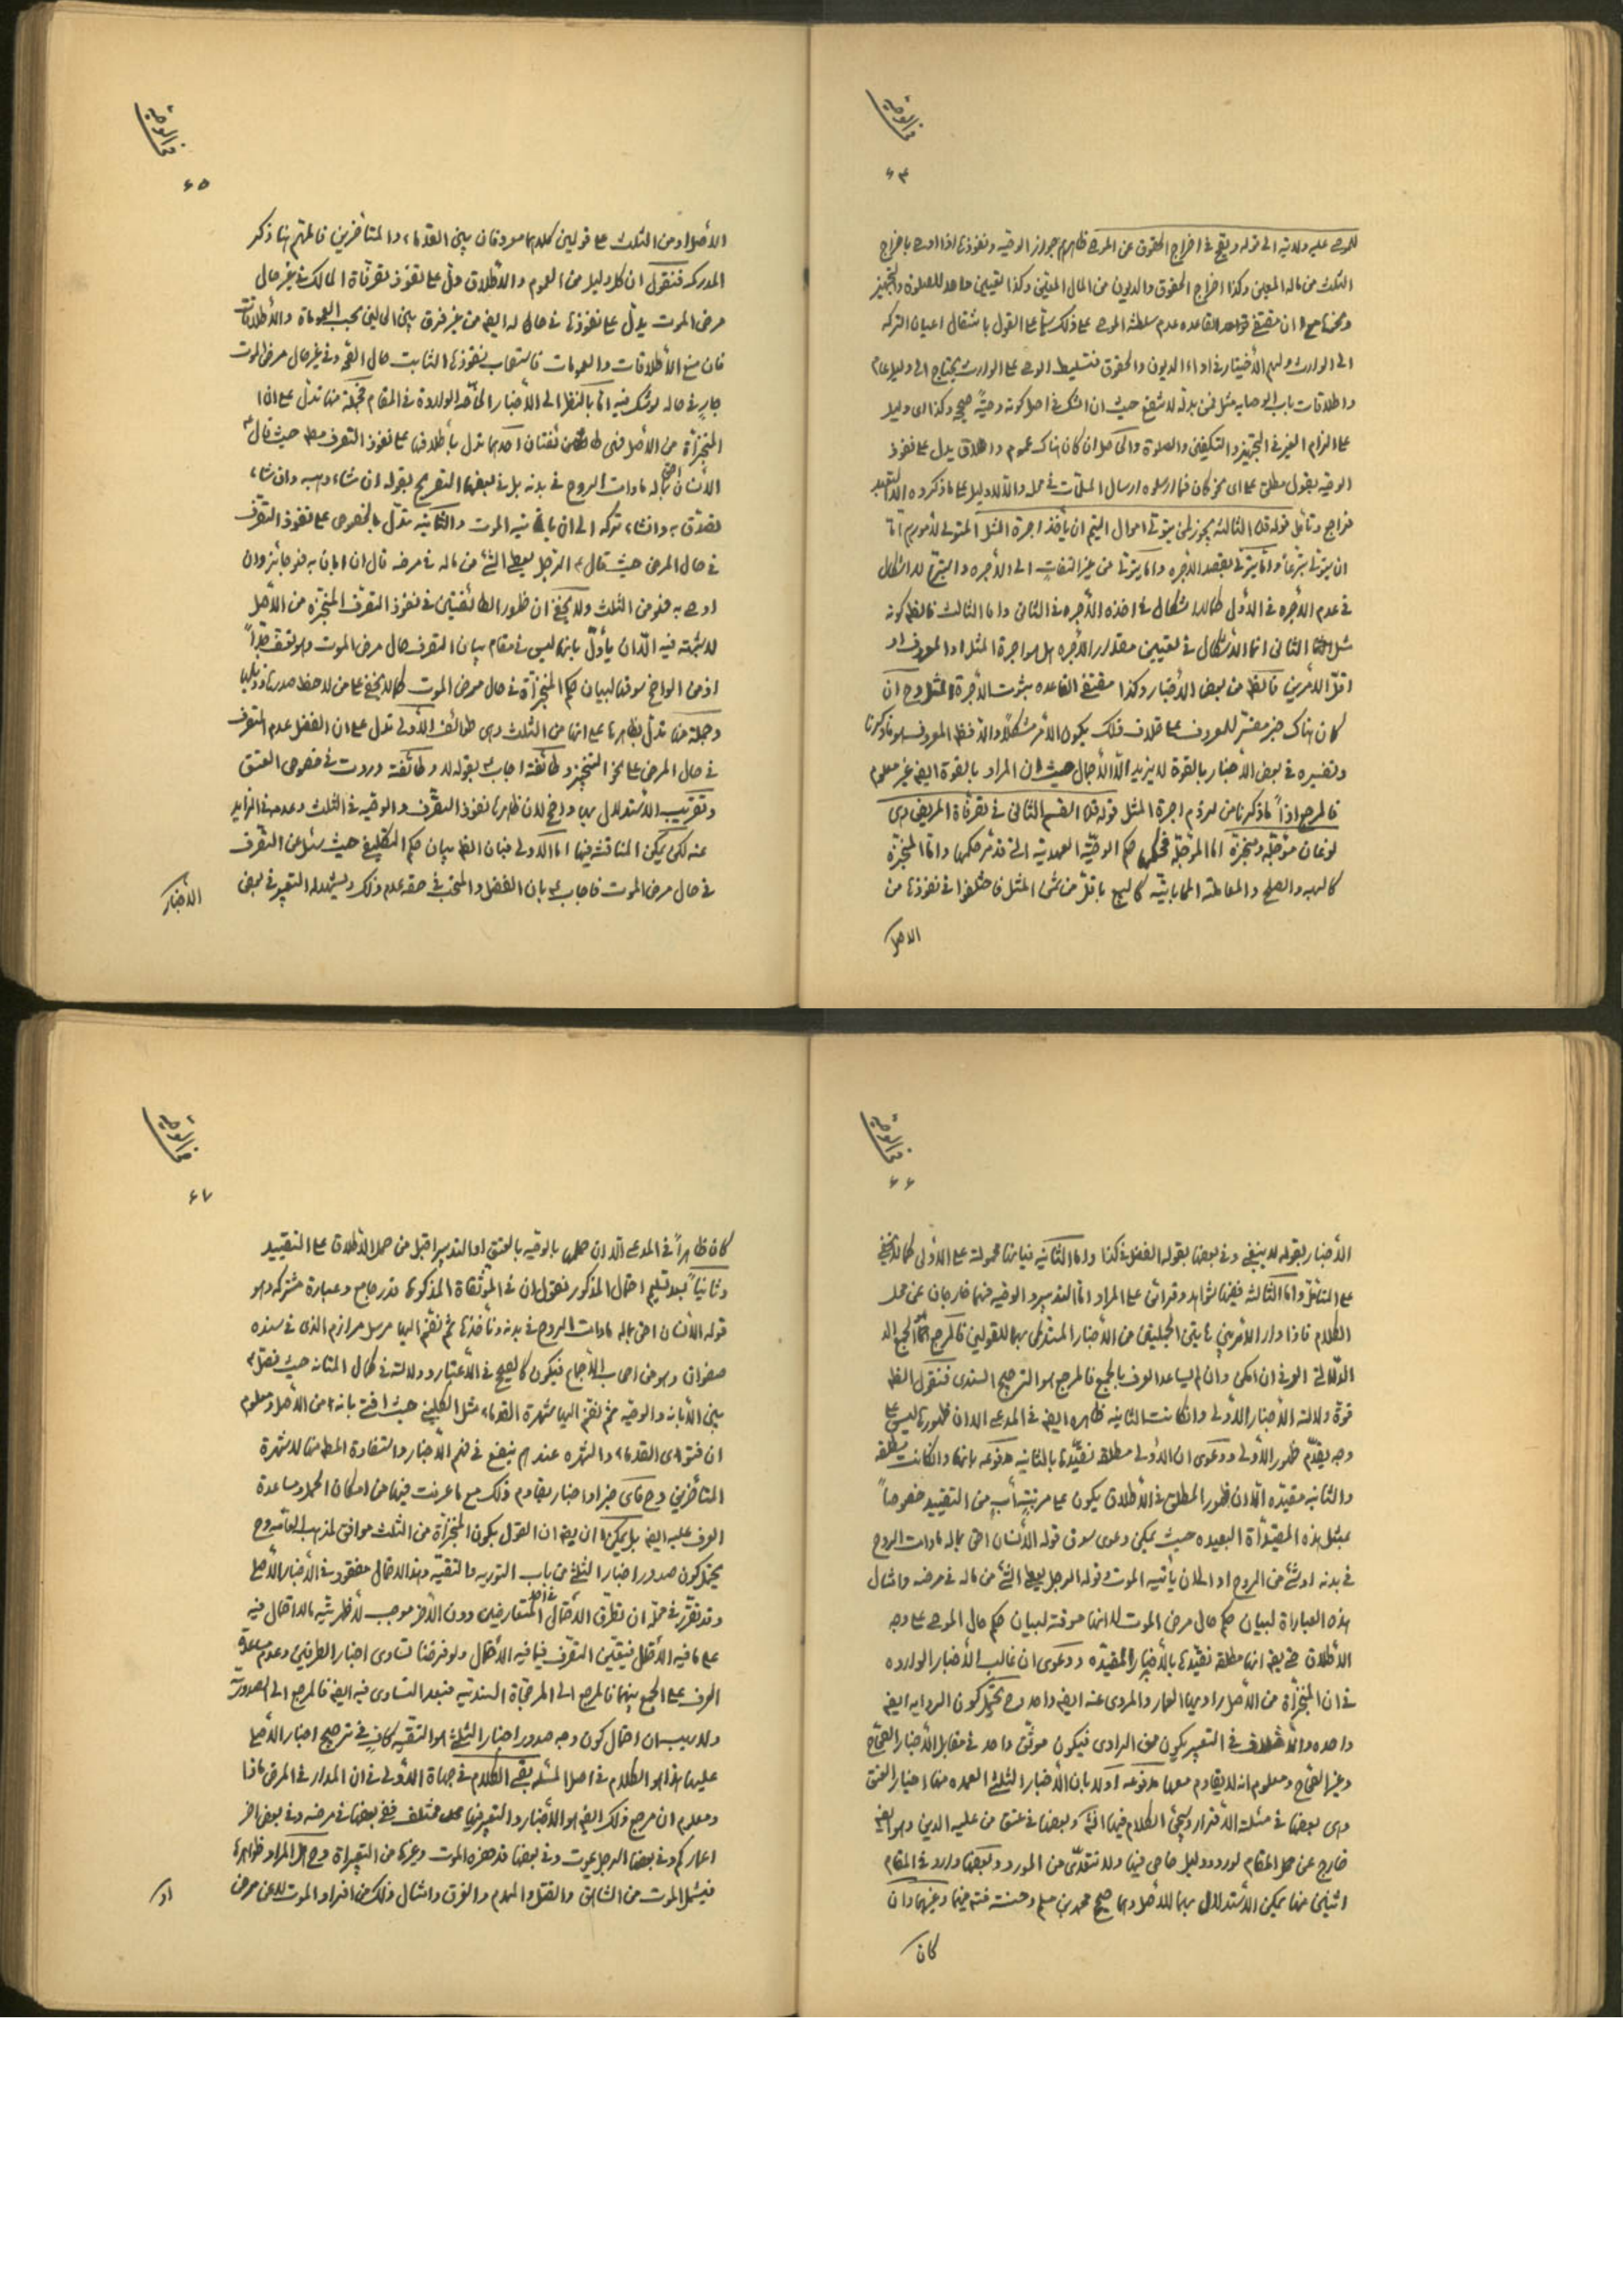 في الوصية
۶۴
للموصى عليه ولاية الى قوله ويقع في اخراج الحقوق عن الموصى ظاهرهم جواز الوصية ونفوذها اذا اوصى باخراج
الثلث من ماله المعين وكذا اخراج الحقوق والديون من المال المعين وكذا تعيين واحد للصلوة والتجهيز
ونحوها مع ان مقتضى القاعده عدم سلطنة الموصى على ذلك سيما على القول بانتقال اعيان التركه
الى الوارث ولهم الأختيار في اداء الديون والحقوق فتسليط الوصى على الوارث يحتاج الى دليل عام
واطلاقات باب الوصايه مثل فمن بدله لا تنفع حيث ان الشك في اصل كونه وصيّة صحيح وكذا اى دليل
على الزام الغير في التجهيز والتكفين والصلوة والحاصل ان كان هناك عموم واطلاق يدل على نفوذ
الوصيه بقول مطلق على اى نحو كان فما ارسلوه ارسال المسلمات في محله والا لا دليل على ما ذكروه الا التعبد
فراجع وتأمل قوله قده الثالثه يجوز لمن يتولى اموال اليتيم ان يأخذ اجرة المثل المتولى لأمورهم امّا
ان يتولى تبرعاً وامّا يتولى بقصد الأجره واما يتولى من غير التفات الى الأجره والتبرع لا اشكال
في عدم الأجره في الأول كما لا اشكال في اخذه الأجره في الثانى واما الثالث فالظ كونه
مثل الثانى انما الأشكال في تعيين مقدار الأجره هل هو اجرة المثل او المعروف او
اقلّ الأمرين فالظ من بعض الأخبار وكذا مقتضى القاعده ثبوت الأجرة المثل وح ان
كان هناك خبر مفسّر للمعروف على خلاف ذلك يكون الأمر مشكلاً والا فظ المعروف هو ما ذكرنا
وتفسيره في بعض الأخبار بالقوة لا يزيد الا الأجمال حيث ان المراد بالقوة ايضا غير معلوم
فالمرجع اذاً ما ذكرنا من لزوم اجرة المثل قوله قده القسم الثانى في تصرفاة المريض وهى
نوعان مؤجلة ومنجزة اما المؤجلة فحكمها حكم الوصيّة العهدية التى قد مرّ حكمها وامّا المنجزة
كالهبه والصلح والمعاملة المحاباتيّه كالبيع باقلّ من ثمن المثل فاختلفوا في نفوذها من
الاصل
في الوصية
۶۵
الأصل او من الثلث على قولين كلاهما معروفان بين القدماء والمتأخرين فالمهم هنا ذكر
المدركه فنقول ان كل دليل من العموم والأطلاق دلّ على نفوذ تصرفاة المالك في غير حال
مرض الموت يدلّ على نفوذها في حال له ايضا من غير فرق بين الحالين بحسب العموماة والأطلاقات
فان منع الأطلاقات والعمومات فاستصحاب نفوذها الثابت حال الصحّه وفي غير حال مرض الموت
جارٍ في حاله لو شك فيه امّا بالنظر الى الأخبار الخاصّه الواردة في المقام فجملة منها تدل على ان
المنجزاة من الأصل فهى طائفتان احدهما تدل بأطلاقها على نفوذ التصرف مط حيث قال ع
الأنسان احق بماله ما دامت الروح في بدنه بل في بعضها التصريح بقوله ان شاء وهبه وان شاء
تصدّق به وان شاء تركه الى ان يأتيه الموت والثانيه تدلّ بالخصوص على نفوذ التصرّف
في حال المرض حيث قال ع الرجل يعطى الشئ من ماله في مرضه قال ان ابان به فهو جائز وان
اوصى به فهو من الثلث ولا يخفى ان ظهور الطائفتين في نفوذ التصرّف المنجّزه من الأصل
لا شبهة فيه الّا ان يأوّل بانها ليس في مقام بيان التصرف حال مرض الموت وهو تعسّف جدّاً
اذ من الواضح سوقها لبيان حكم المنجزاة في حال مرض الموت كما لا يخفى على من لاحظ صدرها وذيلها
وجملة منها تدلّ بظاهرها على انها من الثلث وهى طوائف الأولى تدل على ان الفضل عدم التصرف
في حال المرض على نحو التنجيز وطائفة اجاب ع بقوله لا وطائفة وردت في خصوص العتق
وتقريب الأستدلال بها واضح لان ظاهرها نفوذ التصرّف والوصيه في الثلث وعدمه في الزايد
عنه لكن يمكن المناقشه فيها اما الأولى فبان الظ بيان حكم التكليفى حيث سئل عن التصرّف
في حال مرض الموت فاجاب ع بان الفضل والمستحب في حقه عدم ذلك ويشهد له التعبير في بعض
الأخبار
في الوصية
۶۶
الأخبار بقوله لا ينبغى وفي بعضها بقوله الفضل في كذا واما الثانيه فبانها محمولة على الأولى كما لا يخفى
على المتأمّل واما الثالثه ففيها شواهد وقرائن على المراد اما التدبير والوصيه فهما خارجان عن محل
الكلام فاذا دار الأمر بين هاتين الجمليتن من الأخبار المستدل بها للقولين فالمرجع امّا الجمع
الدّلالتى العرفى ان امكن وان لم يساعد العرف بالجمع فالمرجع هو الترجيح السندى فنقول الظ
قوة دلالة الأخبار الأولى وان كانت الثانيه ظاهره ايضا في المدعى الا ان ظهورها ليس على
وجه يقدّم ظهور الأولى ودعوى ان الأولى مطلقه نقيّدها بالثانيه مدفوعه بانها وان كانت مطلقه
والثانيه مقيّده الّا ان ظهور المطلق في الأطلاق يكون على مرتبة يأب من التقييد خصوصاً
بمثل هذه المقيداة البعيده حيث يمكن دعوى سوق قوله الأنسان احق بماله ما دامت الروح
في بدنه او شئ من الروح او الى ان يأتيه الموت وقوله الرجل يعطى الشئ من ماله في مرضه وامثال
هذه العباراة لبيان حكم حال مرض الموت لا انها مسوقة لبيان حكم حال الموصى على وجه
الأطلاق حتى يق انها مطلقه نقيّدها بالأخبار المقيّده ودعوى ان غالب الأخبار الوارده
في ان المنجزاة من الأصل راويها العمار والمروى عنه ايضا واحد وح يحتمل كون الروايه ايضا
واحده والأختلاف في التعبير يكون من الراوى فيكون موثّق واحد في مقابل الأخبار الصحّاح
وغير الصحّاح ومعلوم انه لا يقاوم معها مدفوعه اولا بان الأخبار الثلث العمده منها اخبار العتق
وهى بعضها في مسئلة الأقرار وسيجئ الكلام فيها انش وبعضها في عتق من عليه الدين وهو ايضا
خارج عن محل المقام لورود دليل خاص فيها ولا نتعدّى من المورد وبعضها وارد في المقام
اثنين منها يمكن الأستدلال بهما للأصل وهما صحيح محمد بن مسلم وحسنته فتم فيها وغيرهما وان
كان
في الوصية
۶۷
كان ظاهراً في المدعى الّا ان حملها بالوصيه بالعتق او التدبير اقبل من حمل الأطلاق على التقييد
وثانياً بعد تسليم احتمال المذكور نقول ان في الموثقاة المذكورة قدر جامع وعبارة مشتركه وهو
قوله الأنسان احق بماله ما دامت الروح في بدنه ونأخذها ثم نضمّ اليها مرسل مرازم الذى في سنده
صفوان وهو من اصحاب الأجماع فيكون كالصحيح في الأعتبار ودلالته في كمال المتانه حيث فصّل ع
بين الأبانه والوصيه ثم نضمّ اليها شهرة القدماء مثل الكلينى حيث افتى بانها من الأصل ومعلوم
ان فتوى القدماء والشهره عندهم ينفع في فهم الأخبار والستفادة المط منها لا شهرة
المتأخرين وح فاى خبر او اخبار يقاوم ذلك مع ما عرفت فيها من امكان الحمل ومساعدة
العرف عليه ايضا بل يمكن ان يق ان القول بكون المنجزاة من الثلث موافق لمذهب العامّه وح
يحتمل كون صدور اخبار الثلث من باب التوريه والتقيّه وهذا الاحتمال مفقود في الأخبار الأصل
وقد تقرّر في محلّه ان تطرّق الأحتمال في احد المتعارضين دون الأخر موجب لأظهريّته مالا احتمال فيه
على ما فيه الأحتمال فيتعيّن التصرّف فيما فيه الأحتمال ولو فرضنا تساوى اخبار الطرفين وعدم مساعدة
العرف على الجمع بينهما فالمرجع الى المرجحاة السنديّه فبعد التساوى فيه ايضا فالمرجع الى الصدوريّة
ولا ريب ان احتمال كون وجه صدور اخبار الثلث هو التقيّه كافٍ في ترجيح اخبار الأصل
عليها هذا هو الكلام في اصل المسئله بقى الكلام في جهاة الأولى في ان المدار في المرض ماذا
ومعلوم ان مرجع ذلك ايضا هو الأخبار والتعبير فيها مختلف ففى بعضها في مرضه وفي بعض اخر
اعماركم وفي بعضها الرجل يموت وفي بعضها قد حضره الموت وغيرها من التعبيراة وح هل المراد ظواهرها
فيشمل الموت من الشاهق والقتل والهدم والغرق وامثال ذلك من افراد الموت لا عن مرض
او